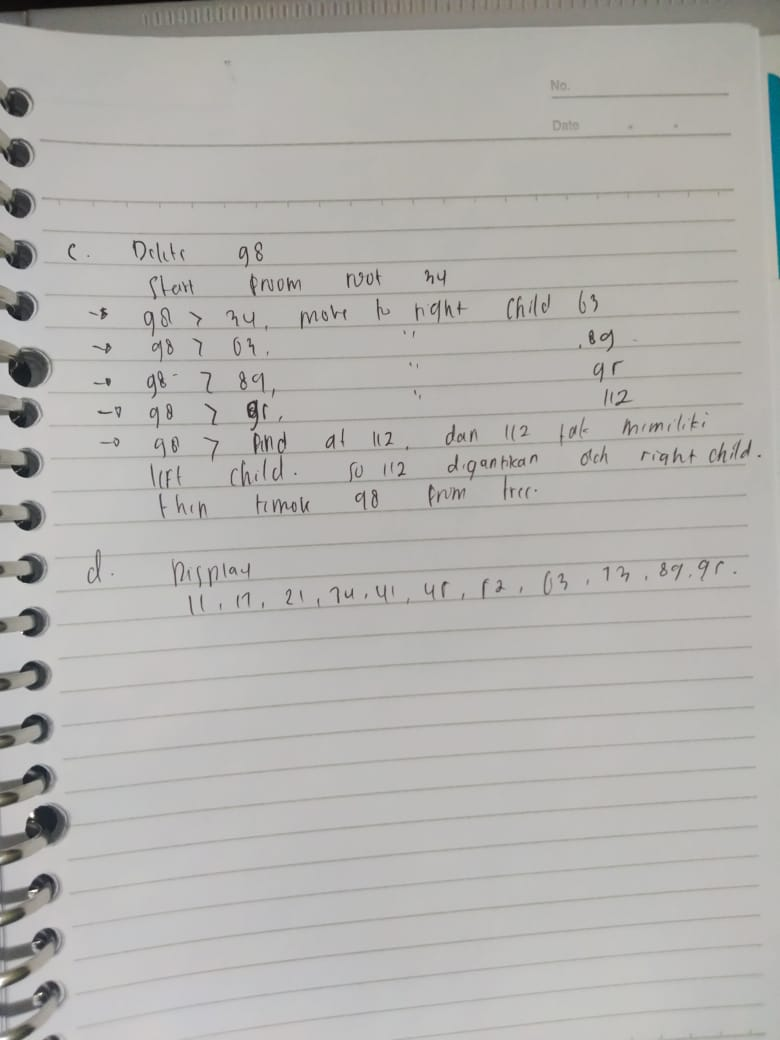 No.
Date
c. Delete 98
Start from root 34
→ 98 > 34, move to right child 63
→ 98 > 63, " 89
→ 98 > 89, " 95
→ 98 > 95, " 112
→ 98 > And at 112, dan 112 tak memiliki
left child. so 112 digantikan oleh right child.
then remove 98 from tree.
d. Display
11, 17, 21, 34, 41, 45, 52, 63, 73, 89, 95.